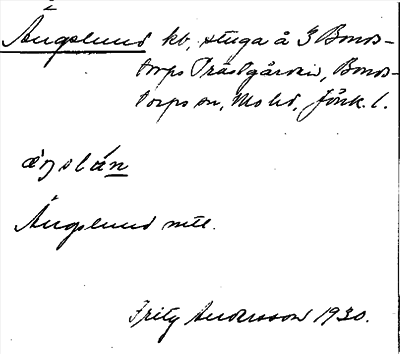 Ängslund kb, stuga å 3 Bonds-
torps Prästgården, Bonds-
torps sn, Mo hd, Jönk. l.
æŋslán
Ängslund mtl.
Fritz Andersson 1930.